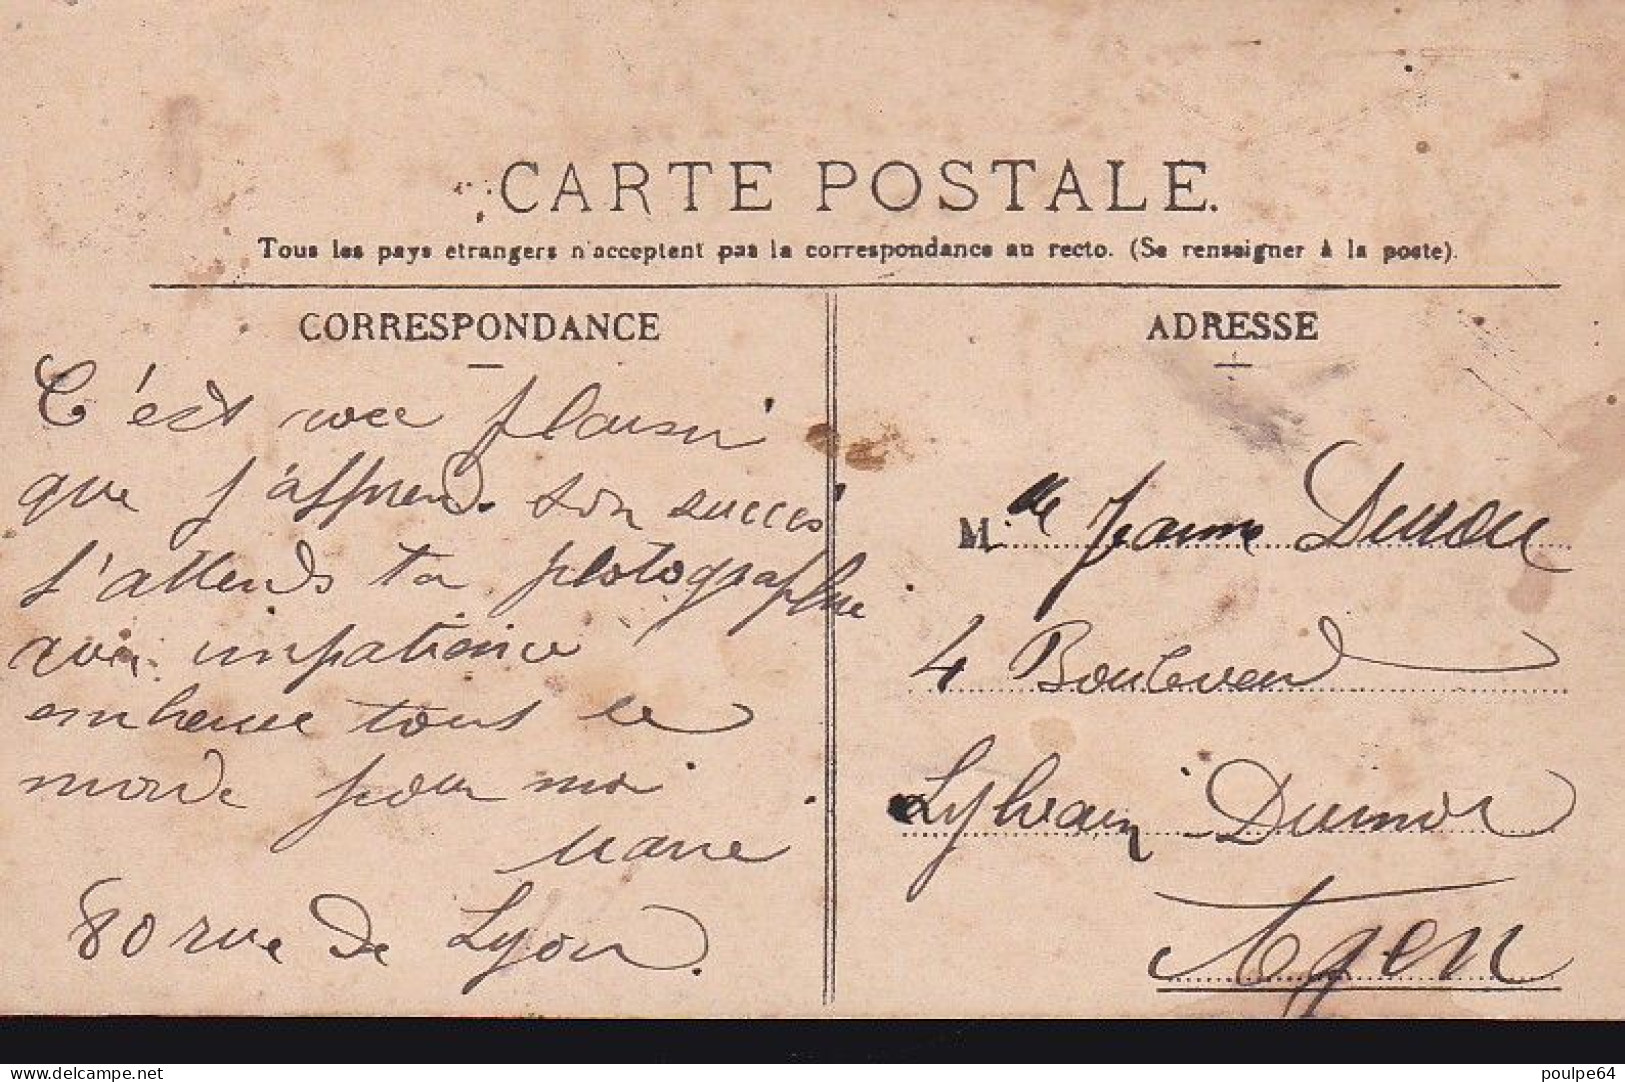 CARTE POSTALE.
Tous les pays etrangers n'acceptent pas la correspondance au recto. (Se renseigner à la poste).
CORRESPONDANCE
C'est avec plaisir
que j'apprends ton succès
j'attends ta photographie
avec impatience
embrasse tout le
monde pour moi
Marie
80 rue de Lyon.
ADRESSE
Mlle Jeanne
4 Boulevard
Sylvain Dumon
Agen
delcampe.net
poulpe64